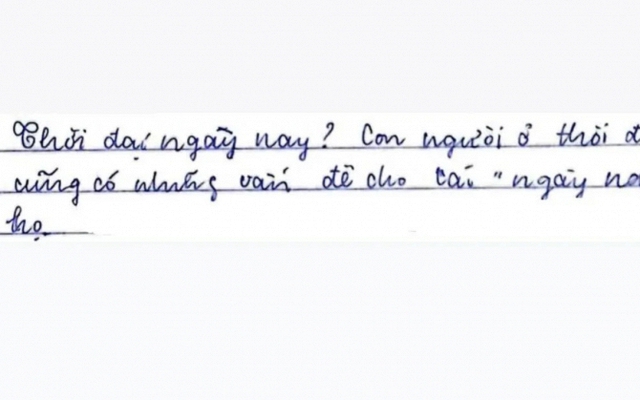 Thời đại ngày nay? Con người ở thời đ
cũng có những vấn đề cho cái "ngày na
họ